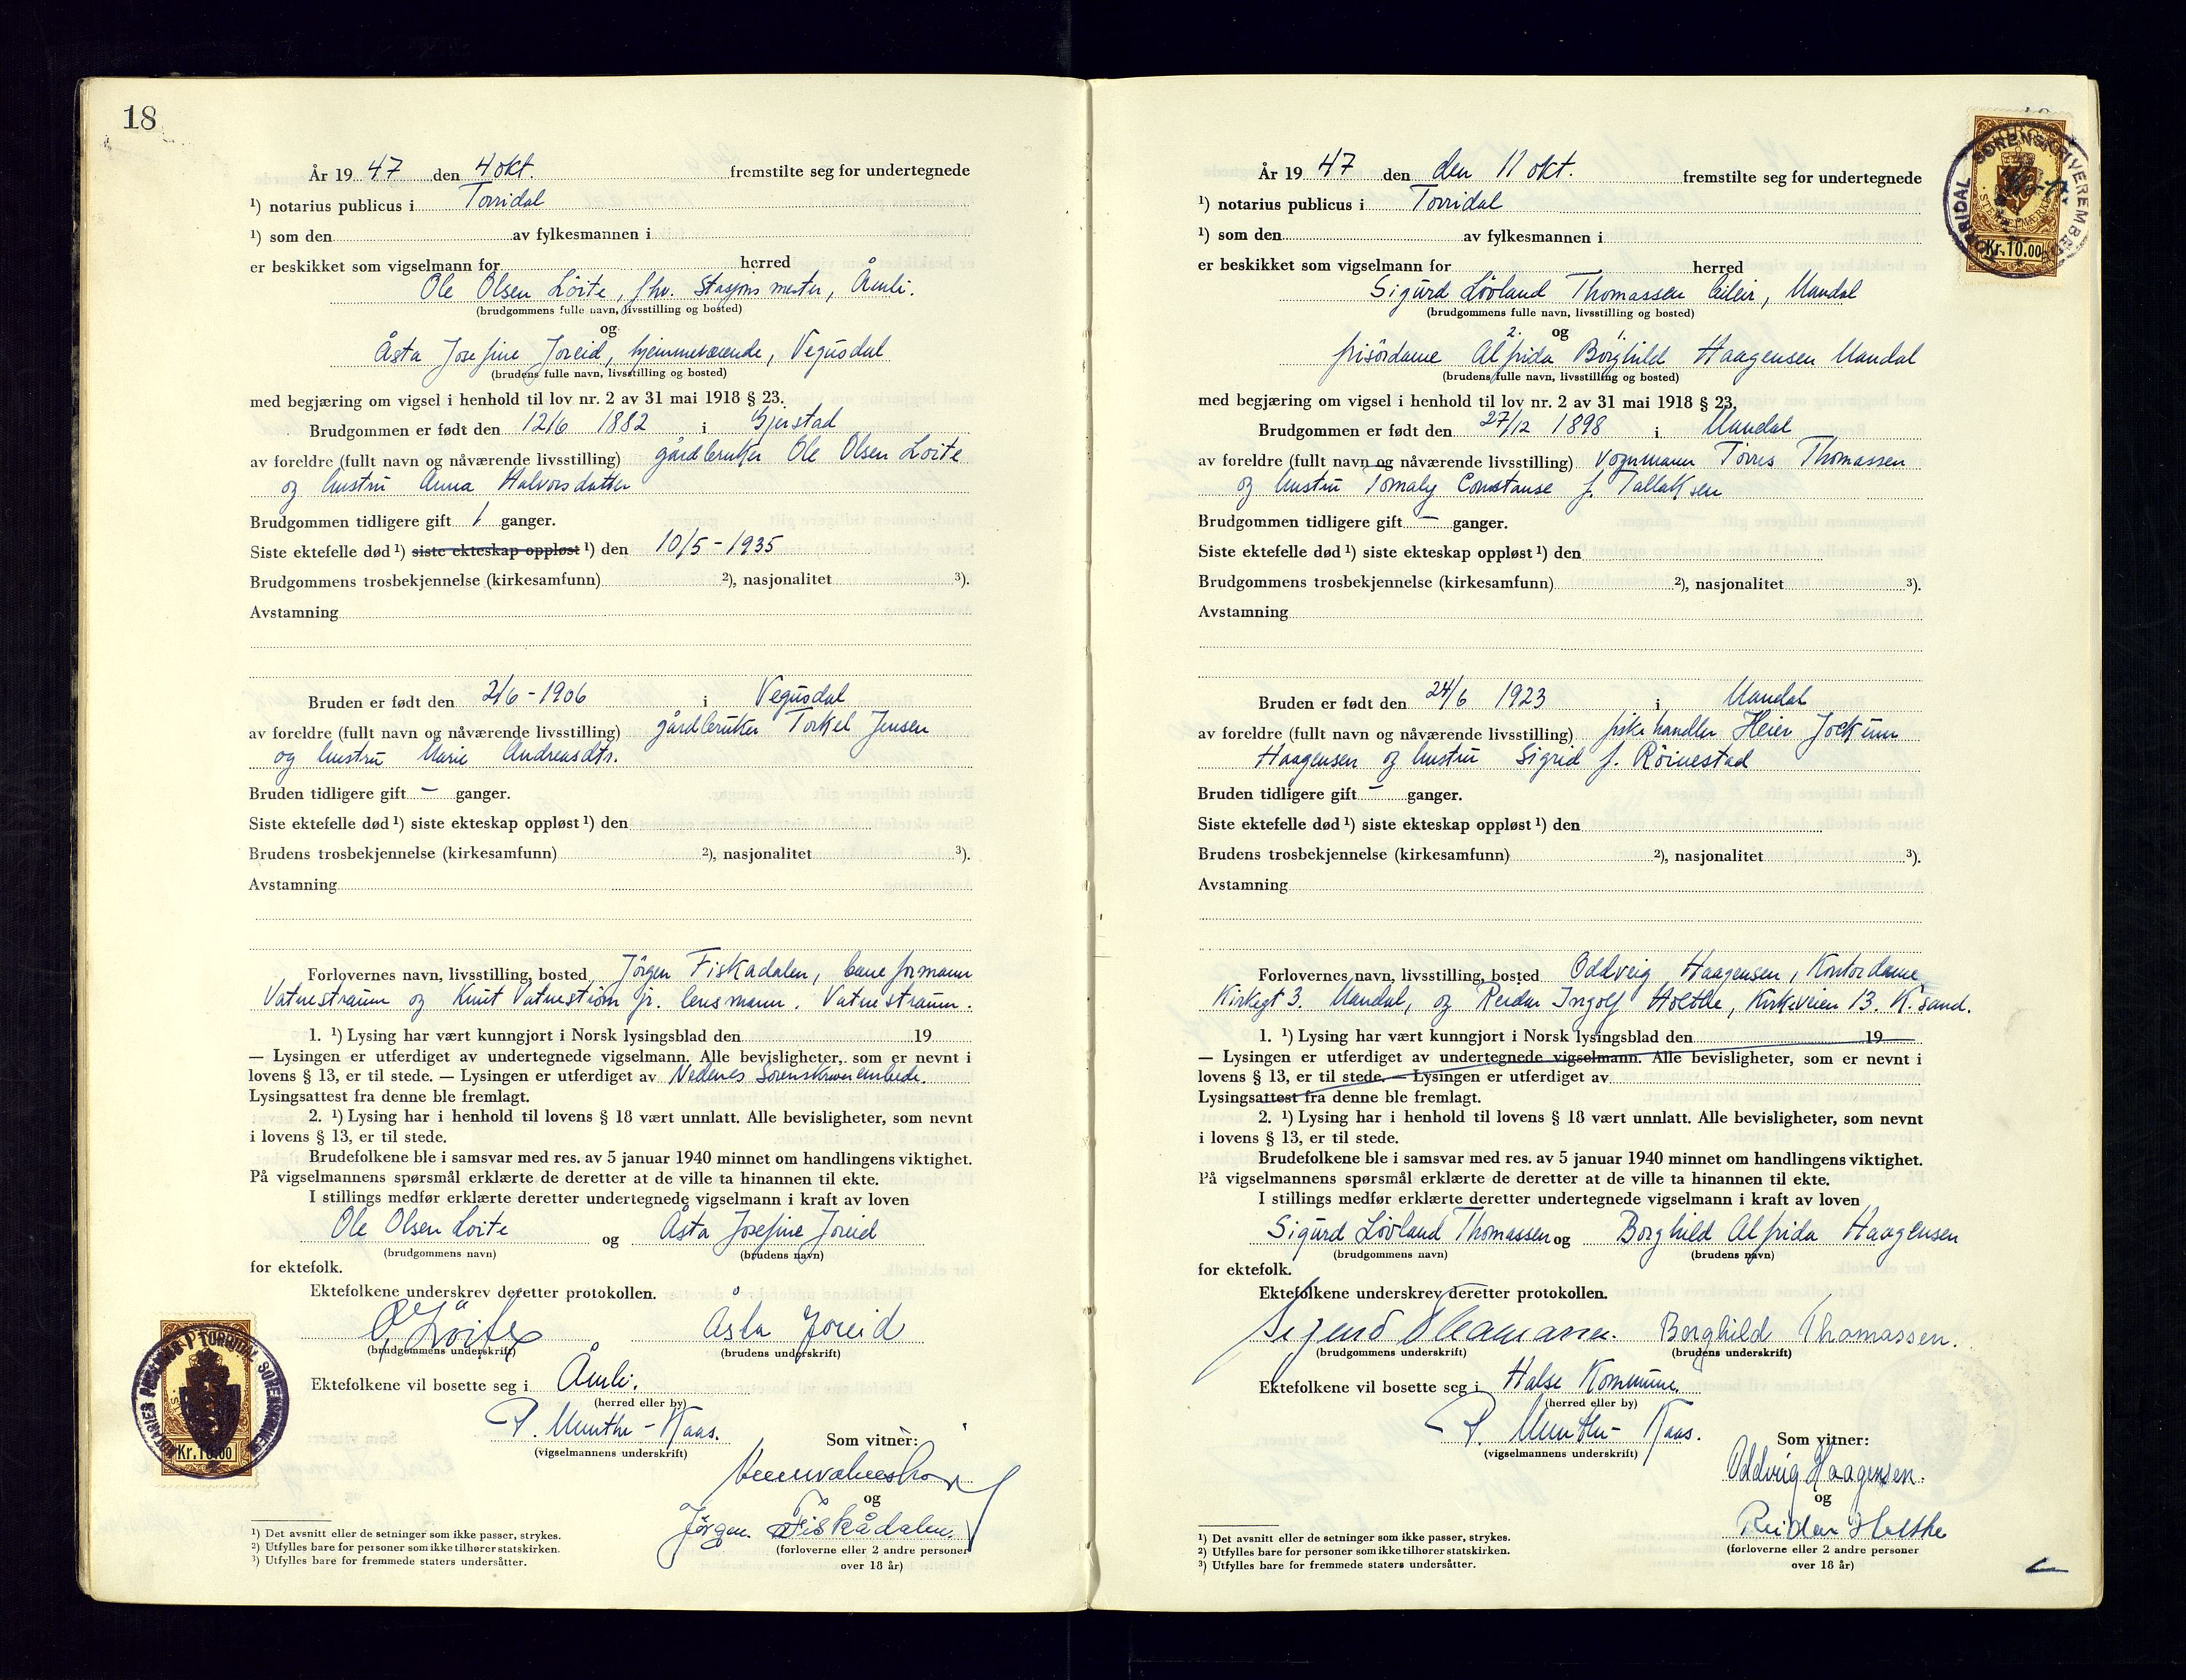 18
År 19 47 den 4 okt. fremstilte seg for undertegnede
¹) notarius publicus i Torridal
¹) som den av fylkesmannen i
er beskikket som vigselmann for herred
Ole Olsen Löite, fhv. Stasjonsmester, Åmli.
(brudgommens fulle navn, livsstilling og bosted)
og
Åsta Josefine Joreid, hjemmeværende, Vegusdal
(brudens fulle navn, livsstilling og bosted)
med begjæring om vigsel i henhold til lov nr. 2 av 31 mai 1918 § 23.
Brudgommen er født den 12/6 1882 i Gjerstad
av foreldre (fullt navn og nåværende livsstilling) gårdbruker Ole Olsen Loite
og hustru Anna Halvorsdatter
Brudgommen tidligere gift 1 ganger.
Siste ektefelle død ¹) siste ekteskap oppløst ¹) den 10/5 - 1935
Brudgommens trosbekjennelse (kirkesamfunn) ²), nasjonalitet ³).
Avstamning
Bruden er født den 2/6 - 1906 i Vegusdal
av foreldre (fullt navn og nåværende livsstilling) gårdbruker Torkel Jensen
og hustru Marie Andreasdtr.
Bruden tidligere gift - ganger.
Siste ektefelle død ¹) siste ekteskap oppløst ¹) den
Brudens trosbekjennelse (kirkesamfunn) ²), nasjonalitet ³).
Avstamning
Forlovernes navn, livsstilling, bosted Jörgen Fiskadalen, baneformann
Vatnestraum og Knut Vatneström jr. lensmann. Vatnestraum.
1. ¹) Lysing har vært kunngjort i Norsk lysingsblad den 19
— Lysingen er utferdiget av undertegnede vigselmann. Alle bevisligheter, som er nevnt i
lovens § 13, er til stede. — Lysingen er utferdiget av Nedenes Sorenskriverembede.
Lysingsattest fra denne ble fremlagt.
2. ¹) Lysing har i henhold til lovens § 18 vært unnlatt. Alle bevisligheter, som nevnt
i lovens § 13, er til stede.
Brudefolkene ble i samsvar med res. av 5 januar 1940 minnet om handlingens viktighet.
På vigselmannens spørsmål erklærte de deretter at de ville ta hinannen til ekte.
I stillings medfør erklærte deretter undertegnede vigselmann i kraft av loven
Ole Olsen Loite og Åsta Josefine Joreid
(brudgommens navn) (brudens navn)
for ektefolk.
Ektefolkene underskrev deretter protokollen.
O. Löite Åsta Joreid
(brudgommens underskrift) (brudens underskrift)
Ektefolkene vil bosette seg i Åmli.
(herred eller by)
P. Munthe-Kaas.
(vigselmannens underskrift)
Som vitner:
og
Jörgen Fiskådalen.
(forloverne eller 2 andre personer
over 18 år)
¹) Det avsnitt eller de setninger som ikke passer, strykes.
²) Utfylles bare for personer som ikke tilhører statskirken.
³) Utfylles bare for fremmede staters undersåtter.
Kr. 10.00
År 19 47 den den 11 okt. fremstilte seg for undertegnede
¹) notarius publicus i Torridal
¹) som den av fylkesmannen i
er beskikket som vigselmann for herred
Sigurd Lövland Thomassen, Mandal
(brudgommens fulle navn, livsstilling og bosted)
2. og 1.
frisördame Alfrida Borghild Haagensen Mandal
(brudens fulle navn, livsstilling og bosted)
med begjæring om vigsel i henhold til lov nr. 2 av 31 mai 1918 § 23.
Brudgommen er født den 27/12 1898 i Mandal
av foreldre (fullt navn og nåværende livsstilling) vognmann Torres Thomassen
og hustru Tomaly Constanse f. Tallaksen
Brudgommen tidligere gift — ganger.
Siste ektefelle død ¹) siste ekteskap oppløst ¹) den
Brudgommens trosbekjennelse (kirkesamfunn) ²), nasjonalitet ³).
Avstamning
Bruden er født den 24/6 1923 i Mandal
av foreldre (fullt navn og nåværende livsstilling) fiskehandler Heier Jockum
Haagensen og hustru Sigrid f. Röinestad
Bruden tidligere gift - ganger.
Siste ektefelle død ¹) siste ekteskap oppløst ¹) den
Brudens trosbekjennelse (kirkesamfunn) ²), nasjonalitet ³).
Avstamning
Forlovernes navn, livsstilling, bosted Oddveig Haagensen, Kontordame
Kirkegt 3. Mandal, og Reidar Ingolf Holthe, Kirkeveien 13. K.sand.
1. ¹) Lysing har vært kunngjort i Norsk lysingsblad den 19
— Lysingen er utferdiget av undertegnede vigselmann. Alle bevisligheter, som er nevnt i
lovens § 13, er til stede. — Lysingen er utferdiget av
Lysingsattest fra denne ble fremlagt.
2. ¹) Lysing har i henhold til lovens § 18 vært unnlatt. Alle bevisligheter, som nevnt
i lovens § 13, er til stede.
Brudefolkene ble i samsvar med res. av 5 januar 1940 minnet om handlingens viktighet.
På vigselmannens spørsmål erklærte de deretter at de ville ta hinannen til ekte.
I stillings medfør erklærte deretter undertegnede vigselmann i kraft av loven
Sigurd Lövland Thomassen og Borghild Alfrida Haagensen
(brudgommens navn) (brudens navn)
for ektefolk.
Ektefolkene underskrev deretter protokollen.
Sigurd Thomassen. Borghild Thomassen.
(brudgommens underskrift) (brudens underskrift)
Ektefolkene vil bosette seg i Halse Kommune.
(herred eller by)
P. Munthe-Kaas.
(vigselmannens underskrift)
Som vitner:
Oddveig Haagensen.
og
Reidar Holthe
(forloverne eller 2 andre personer
over 18 år)
¹) Det avsnitt eller de setninger som ikke passer, strykes.
²) Utfylles bare for personer som ikke tilhører statskirken.
³) Utfylles bare for fremmede staters undersåtter.
TORRIDAL SORENSKRIVEREMBEDE
Kr. 10.00